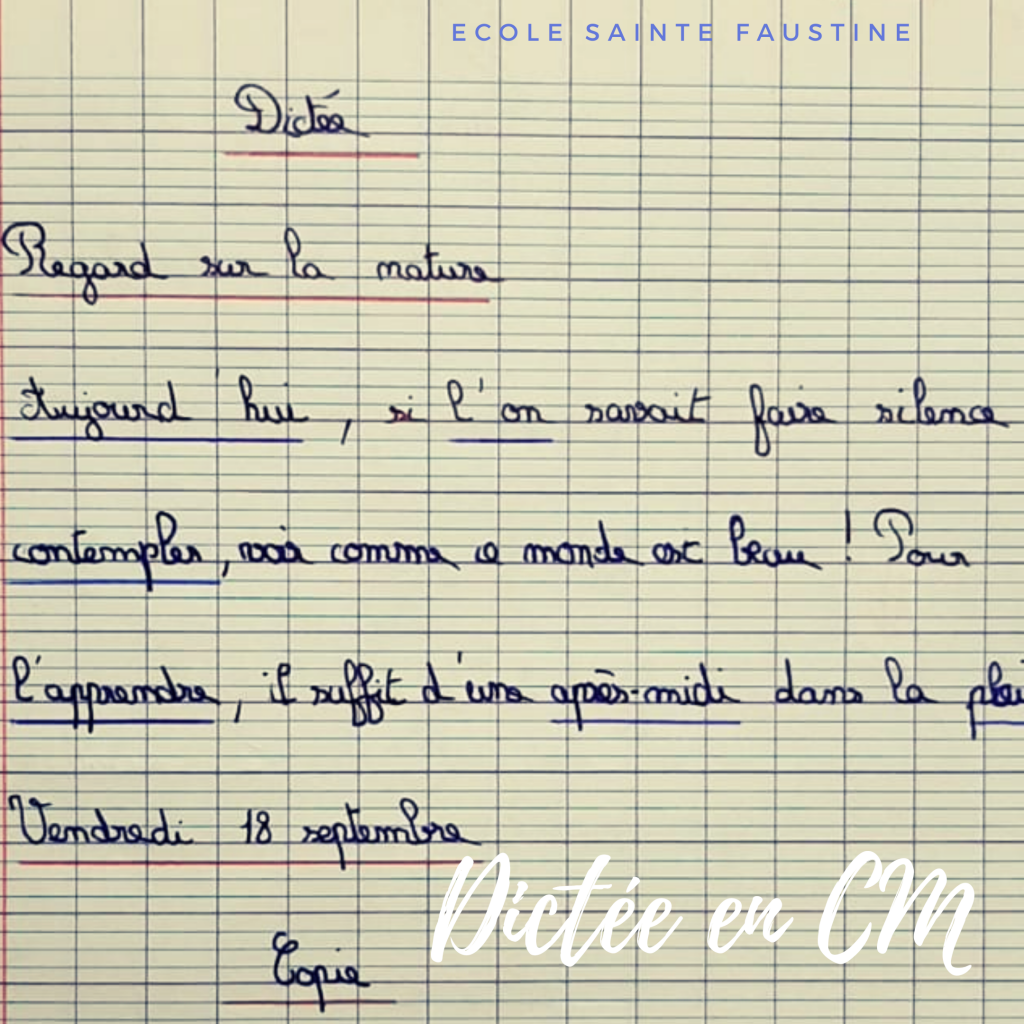 ECOLE SAINTE FAUSTINE
Dictée
Regard sur la nature
Aujourd'hui, si l'on savait faire silence
contempler, voir comme ce monde est beau ! Pour
l'apprendre, il suffit d'une après-midi dans la
Vendredi 18 septembre
Dictée en CM
Copie